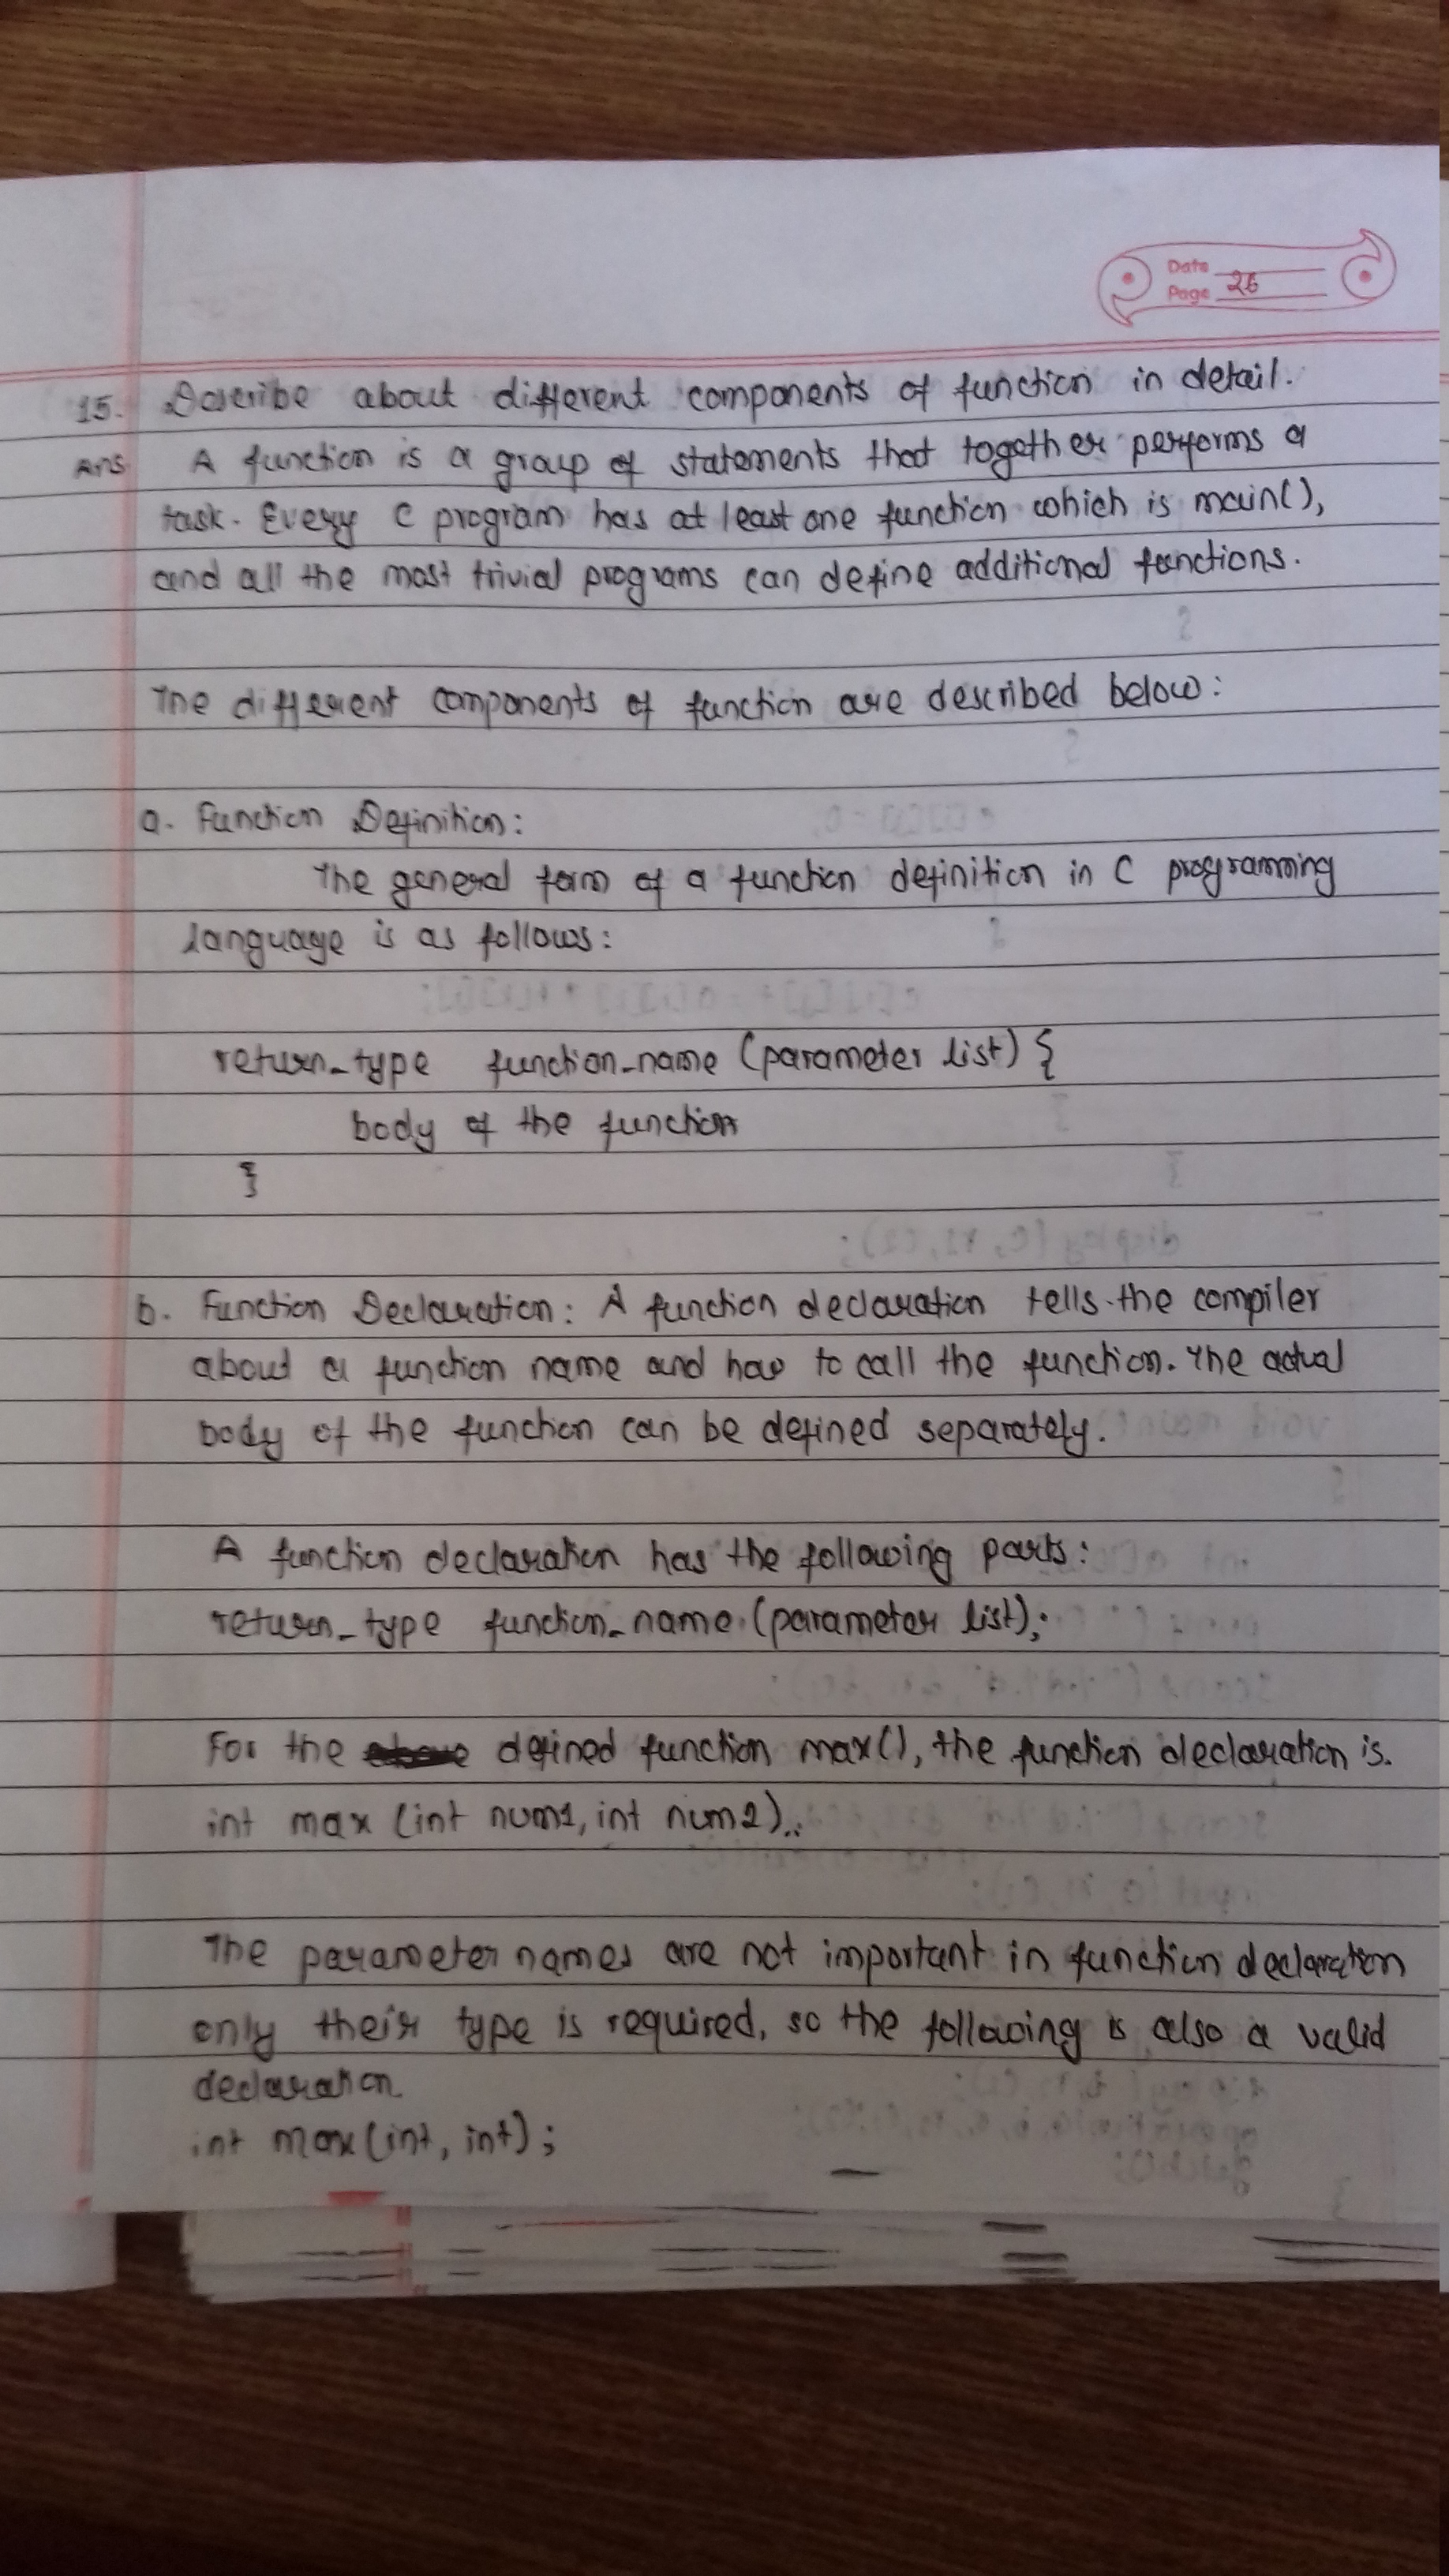 Date
Page 26
15. Describe about different components of function in detail.
Ans A function is a group of statements that together performs a
task. Every C program has at least one function which is main(),
and all the most trivial programs can define additional functions.
The different components of function are described below:
a. Function Definition:
The general form of a function definition in C programming
language is as follows:
return_type function_name (parameter list) {
body of the function
}
b. Function Declaration: A function declaration tells the compiler
about a function name and how to call the function. The actual
body of the function can be defined separately.
A function declaration has the following parts:
return_type function_name (parameter list);
For the defined function max(), the function declaration is.
int max (int num1, int num2);
The parameter names are not important in function declaration
only their type is required, so the following is also a valid
declaration.
int max (int, int);